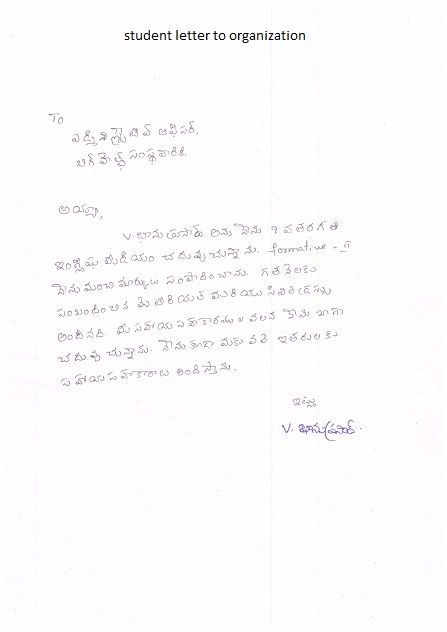 student letter to organization
To
ఎడ్మినిస్ట్రేటివ్ ఆఫీసర్,
బిగ్ హెల్ప్ సంస్థ వారికి.
అయ్యా,
V. భాను ప్రసాద్ అను నేను 9 వ తరగతి
ఇంగ్లీషు మీడియం చదువుచున్నాను. formative - II
నేను మంచి మార్కులు సంపాదించాను. గత నెలకు
సంబందించిన మెటీరియల్ మరియు
అందినది. మీ సహాయ సహకారముల వలన నేను బాగా
చదువుచున్నాను. నేను కూడా మీకు వలె ఇతరులకు
సహాయ సహకారాలు అందిస్తాను.
ఇట్లు
V. భానుప్రసాద్.